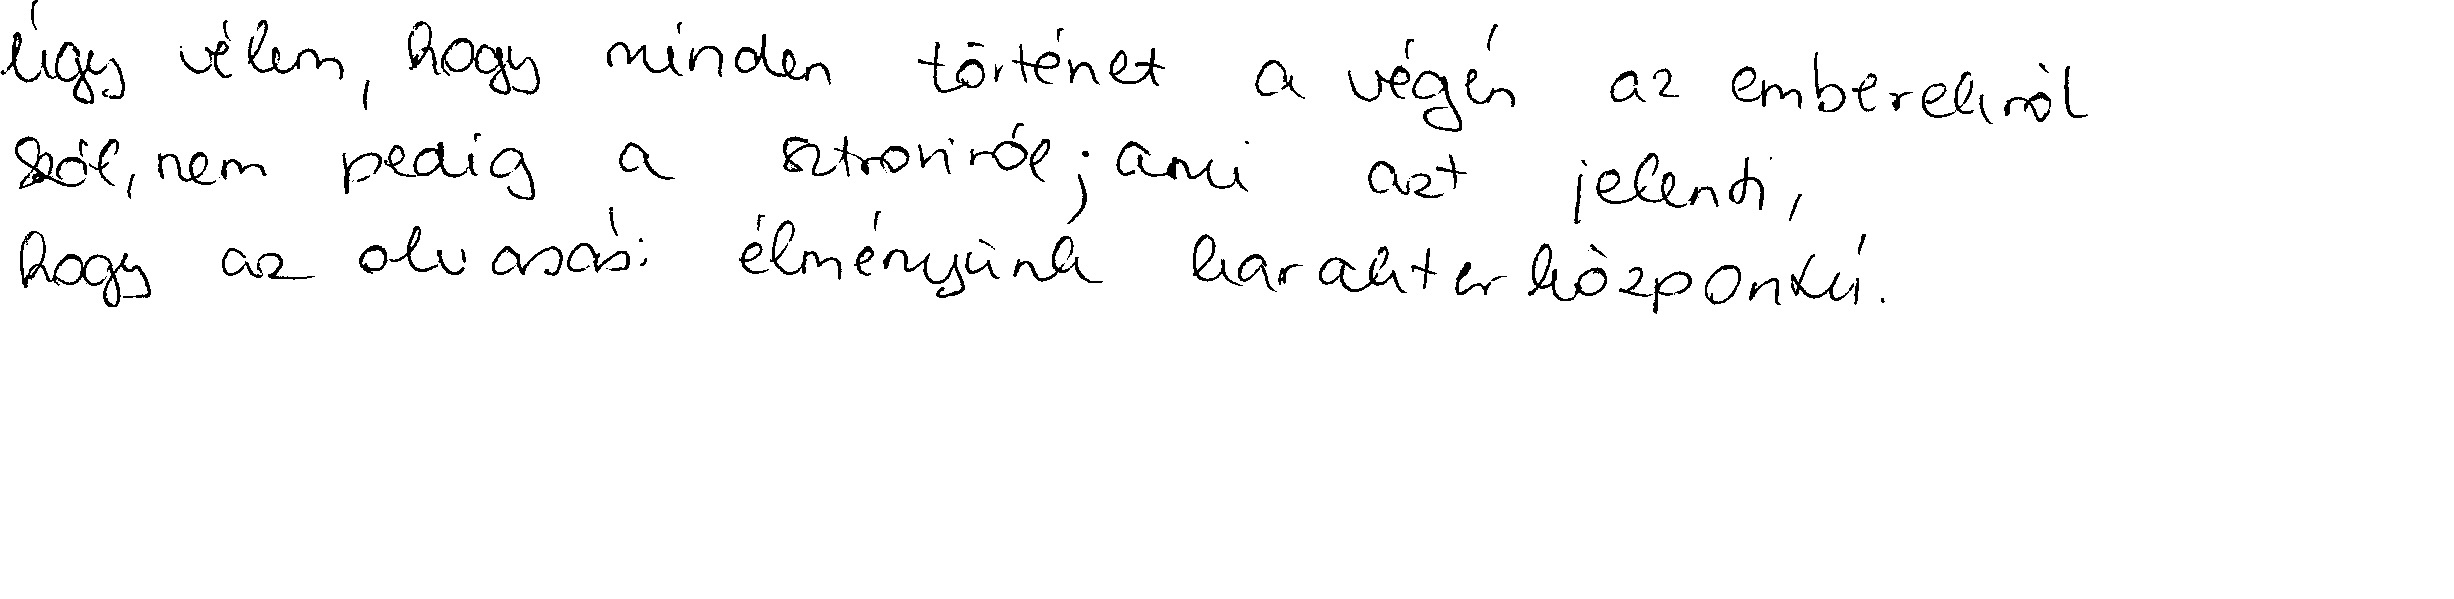 Úgy vélem, hogy minden történet a végén az emberekről
szól, nem pedig a sztoriról; ami azt jelenti,
hogy az olvasási élményünk karakterközpontú.